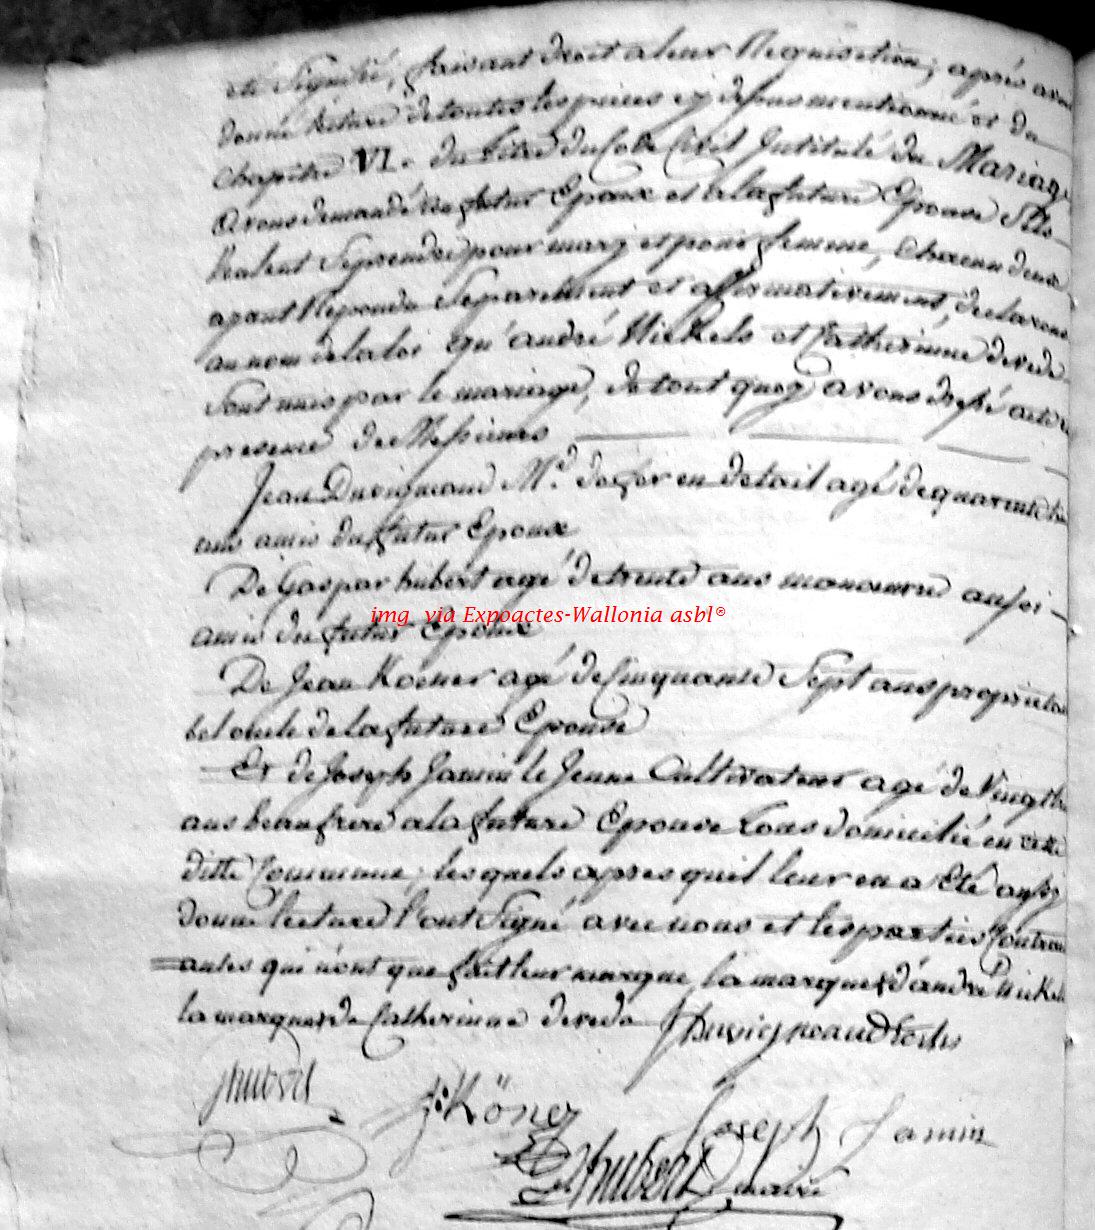 eté Signifié, faisant droit a leur Requisition; après avoir
donné lecture de toutes les pieces cy dessus mentionné et du
chapitre VI. du titre du Code Civil Jntitulé du Mariage
avons demandé au futur Epoux et a la future Epouse Sils
Veulent Se prendre pour mary et pour femme, chacun deux
ayant Repondu Separement et affirmativement, declarons
au nom de la loi qu'andré Nickels et Catherinne derede
Sont unis par le mariage, de tout quoy avons dressé acte en
presence de Messieurs
Jean Duvigneaud Md. de fer en detail agé de quarante
ans amis du futur Epoux
De Gaspar hubert agé de trente ans manœuvre aussi
amis du futur Epoux
img via Expoactes-Wallonia asbl®
De Jean Koener agé de Cinquante Sept ans proprietair
bel oncle de la future Epouse
Et de Joseph Jamin le Jeune Cultivateur agé de Vingt
ans beaufrere a la future Epouse tous domicilié en cette
ditte Commune; les quels apres quil leur en a Eté aussy
donné lecture l'ont Signé, avec nous et les parties Contract
antes qui n'ont que fait leur marque, la marque d'andré Nickels
la marque de Catherinne derede JDuvigneaud
jhubert
J: Köner
Joseph Jamin
hubert maire